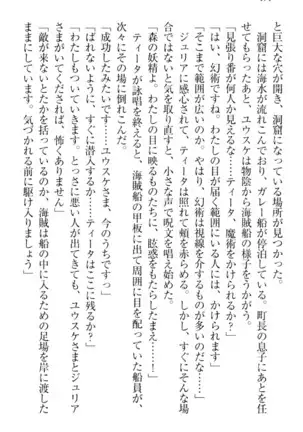 と巨大な穴が開き、洞窟になっている場所が見つかった。
洞窟には海水が流れこんでおり、ガレー船が停泊している。町長の息子にあとを任
せてもらうと、ユウスケは物陰から海賊船の様子をうかがう。
「見張り番が何人か見えるな……ティータ、魔術をかけられるか?」
「はい、幻術ですね。わたしの目が届く範囲にいる人には、かけられます」
「そこまで範囲が広いのか。やはり、幻術は視線を介するものが多いのだな……」
ジュリアに感心されて、ティータは照れて頬を赤らめる。しかし、すぐにそんな場
合ではないと気を取り直すと、小さな声で呪文を唱え始めた。
「森の妖精よ。わたしの目に映るものたちに、眩惑をもたらしたまえ……!」
ティータが詠唱を終えると、海賊船の甲板に出て周囲に目を配っていた船員が、
次々にその場に倒れこんだ。
「成功したみたいです……ユウスケさま、今のうちですっ」
「ばれないように、すぐに潜入するか……ティータはここに残るか?」
「わたしもついていきます。とっさに悪い人が出てきても、ユウスケさまとジュリア
さまがいてくだされば、怖くありません」
「敵が来ないとたかを括っているのか、海賊は船の中に入るための足場を岸に渡した
ままにしています。気づかれる前に駆け入りましょう」